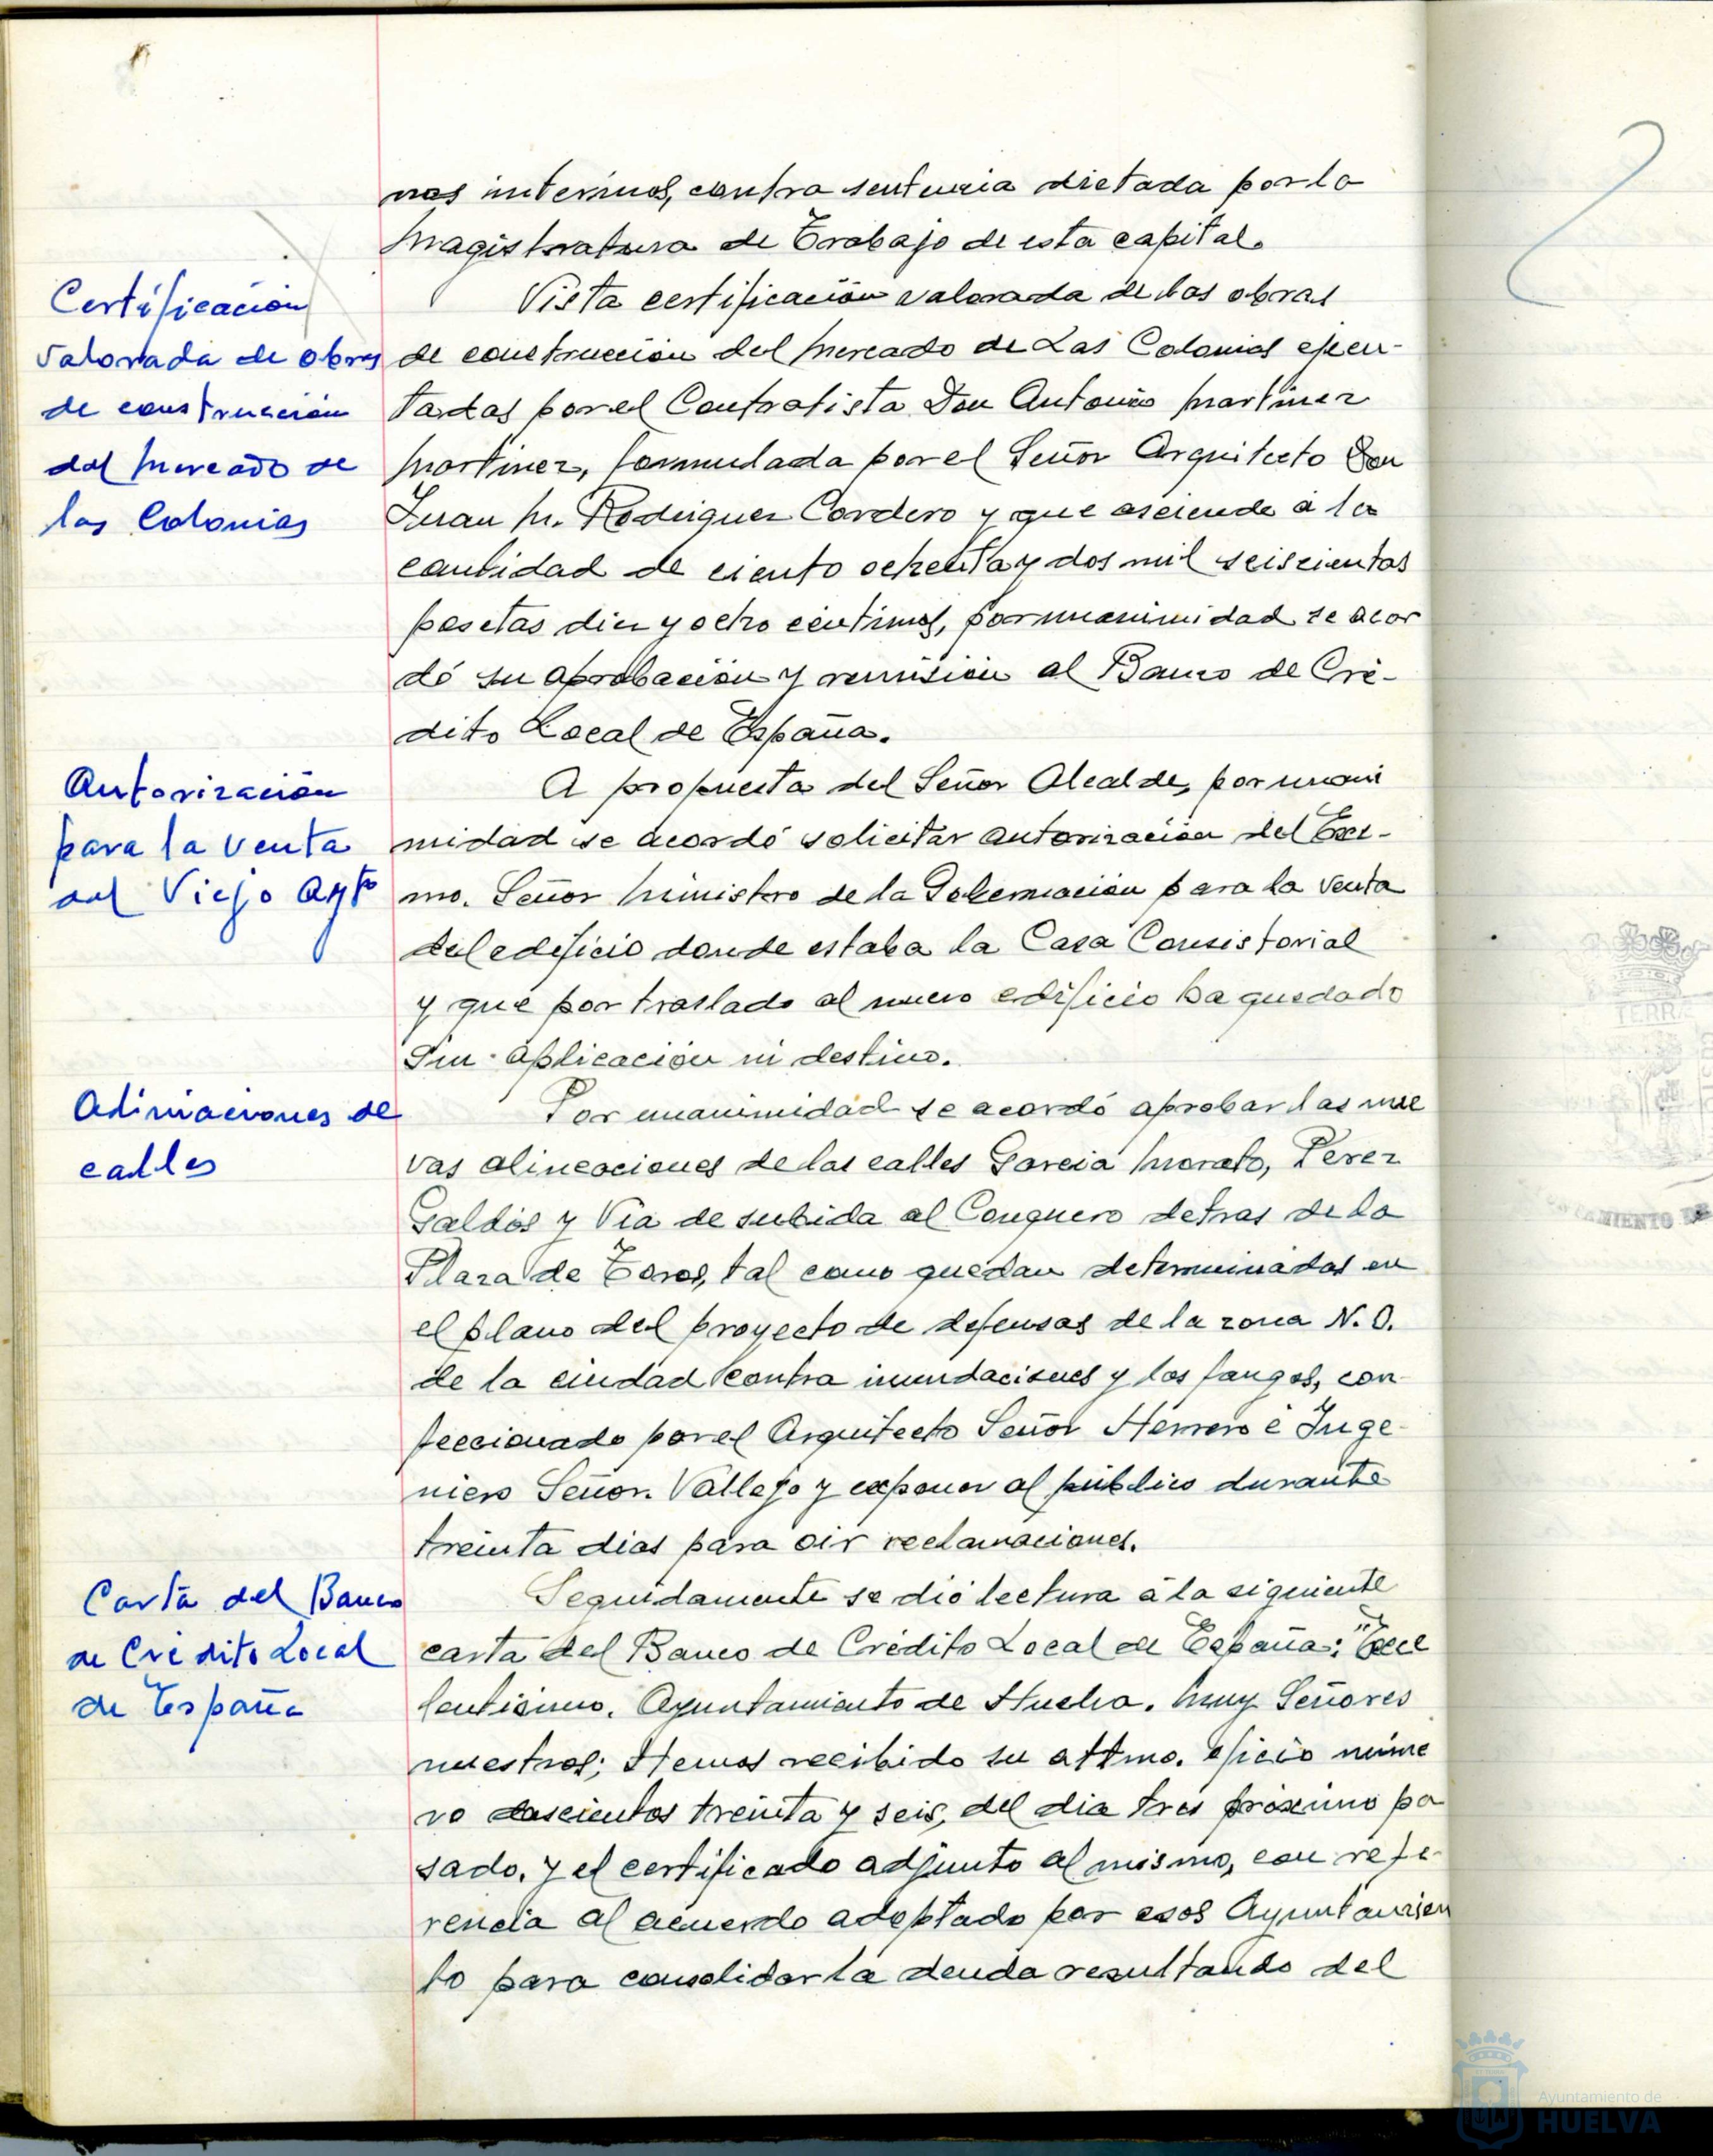 nos interinos, contra sentencia dictada por la
Magistratura de Trabajo de esta capital.
Certificación
valorada de obras
de construcción
del Mercado de
las Colonias
Vista certificación valorada de las obras
de construcción del Mercado de Las Colonias ejecu-
tadas por el Contratista Don Antonio Martinez
Martinez, formulada por el Señor Arquitecto Don
Juan M. Rodriguez Cordero y que asciende á la
cantidad de ciento ochenta y dos mil seiscientas
pesetas diez y ocho centimos, por unanimidad se acor
dó su aprobación y remisión al Banco de Cré-
dito Local de España.
Autorización
para la venta
del Viejo Aytº
A propuesta del Señor Alcalde, por unani
midad se acordó solicitar autorización del Exc-
mo. Señor Ministro de la Gobernación para la venta
del edificio donde estaba la Casa Consistorial
y que por traslado al nuevo edificio ha quedado
sin aplicación ni destino.
Aliniaciones de
calles
Por unanimidad se acordó aprobar las nue
vas alineaciones de las calles Garcia Morato, Perez
Galdós y Via de subida al Conquero detras de la
Plaza de Toros, tal como quedan determinadas en
el plano del proyecto de defensas de la zona N.O.
de la ciudad contra inundaciones y los fangos, con-
feccionado por el Arquitecto Señor Herrero é Inge-
niero Señor Vallejo y exponer al público durante
treinta dias para oir reclamaciones.
Carta del Banco
de Crédito Local
de España
Seguidamente se dió lectura á la siguiente
carta del Banco de Crédito Local de España: "Exce
lentisimo. Ayuntamiento de Huelva. Muy Señores
nuestros; Hemos recibido su attmo. oficio núme
ro doscientos treinta y seis, del dia tres próximo pa
sado, y el certificado adjunto al mismo, con refe-
rencia al acuerdo adoptado por esos Ayuntamien
to para consolidar la deuda resultando del
TERRA
AMIENTO DE
Ayuntamiento de
HUELVA